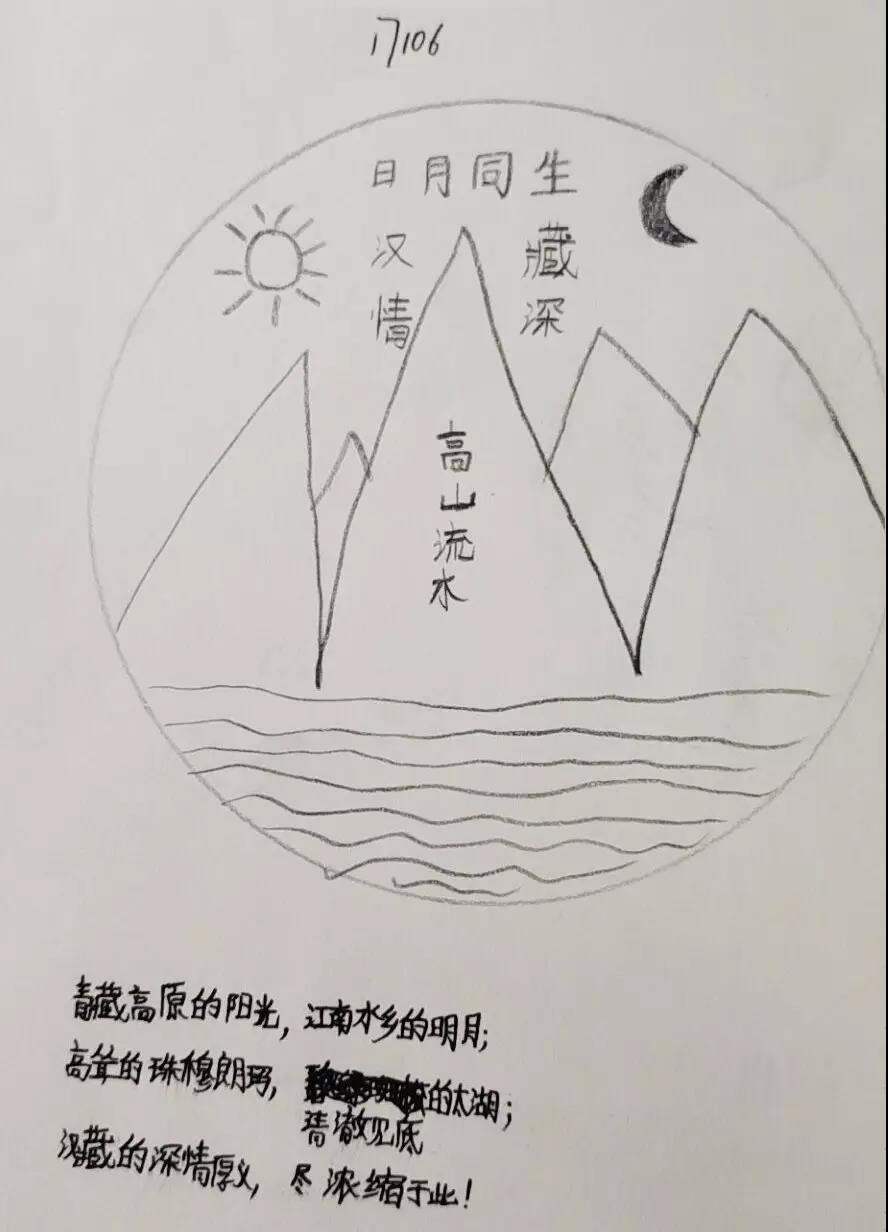 17106
日月同生
汉藏
情深
高山流水
青藏高原的阳光，江南水乡的明月；
高耸的珠穆朗玛，的太湖；
清澈见底
汉藏的深情厚义，尽浓缩于此！